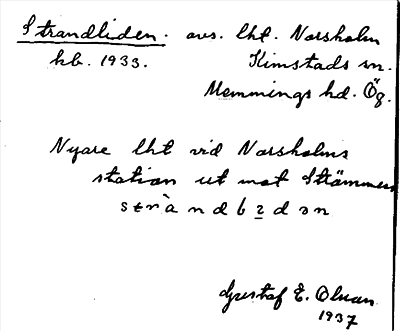 Strandliden. avs. lht. Norsholm
kb. 1933. Kimstads sn.
Memmings hd. Ög.
Nyare lht vid Norsholms
station ut mot Strömmen
stràndbadən
Gustaf E. Olsson
1937